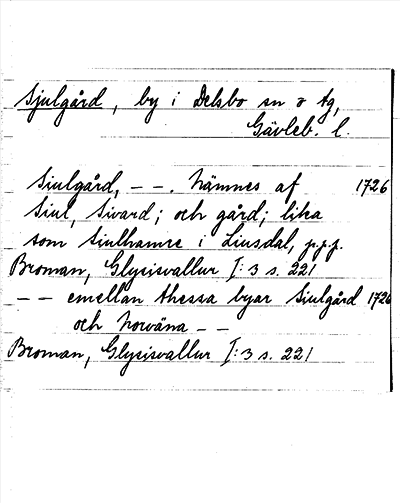 Sjulgård, by i Delsbo sn o tg,
Gävleb. l.
Siulgård, – –. nämnes af 1726
Siul, Sivard; och gård; lika
som Siulhamre i Liusdal, p.p.p.
Broman, Glysisvallur I:3 s. 221
– – emellan thessa byar Siulgård 1726
och Norväna – –
Broman, Glysisvallur I:3 s. 221